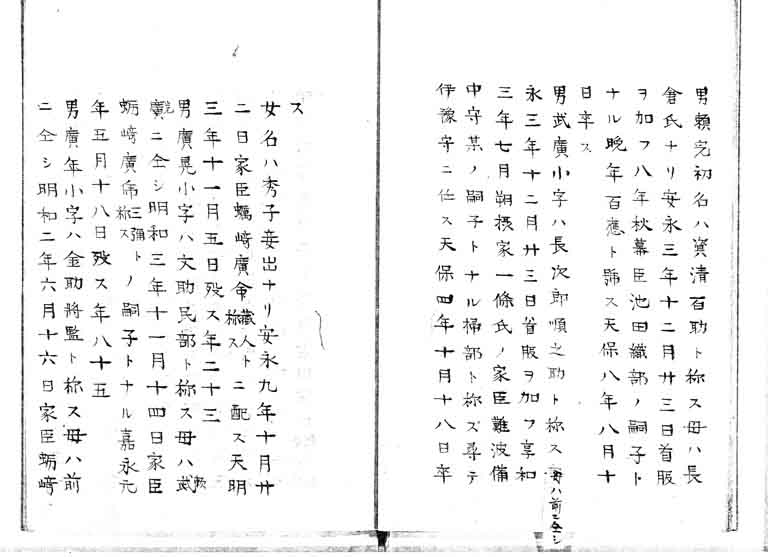 男賴完初名ハ寳清百助ト称ス母ハ長
倉氏ナリ安永三年十二月廿三日首服
ヲ加フ八年秋幕臣池田織部ノ嗣子ト
ナル晩年百應ト號ス天保八年八月十
日卒ス
男武廣小字ハ長次郎順之助ト称ス母ハ前ニ仝シ
永三年十二月廿三日首服ヲ加フ享和
三年七月朔摂家一條氏ノ家臣難波備
中守某ノ嗣子トナル掃部ト称ス尋テ
伊豫守ニ任ス天保四年十月十八日卒
ス
女名ハ秀子妾出ナリ安永九年十月廿
二日家臣蠣崎廣命蔵人ト称スニ配ス天明
三年十一月五日歿ス年二十三
男廣晃小字ハ文助民部ト称ス母ハ武
廣ニ仝シ明和三年十一月十四日家臣
蛎崎廣 三彌ト称スノ嗣子トナル嘉永元
年五月十八日歿ス年八十五
男廣年小字ハ金助將監ト称ス母ハ前
ニ仝シ明和二年六月十六日家臣蛎崎